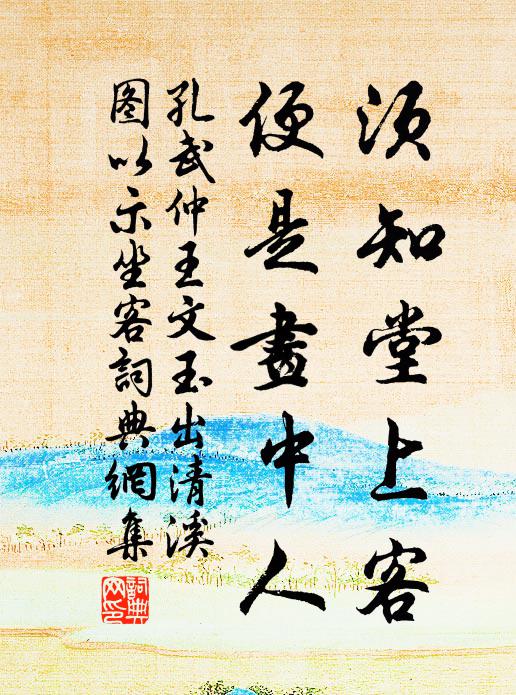 须知堂上客
便是畫中人
孔武仲王文玉出清溪
图以示坐客詞典網集